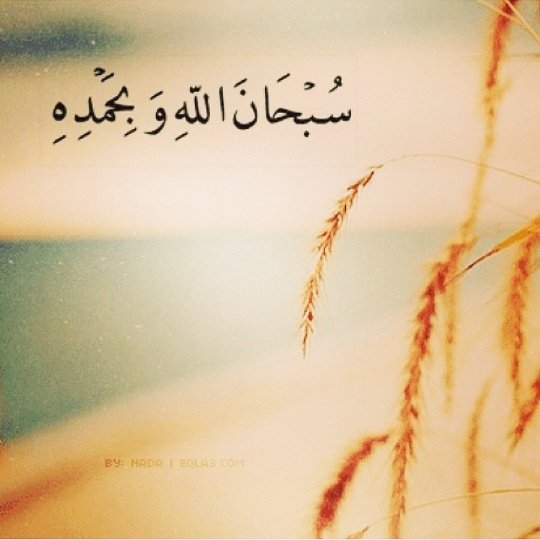 سُبْحَانَ اللّهِ وَ بِحَمْدِهِ
BY: NADA | EOLA3.COM